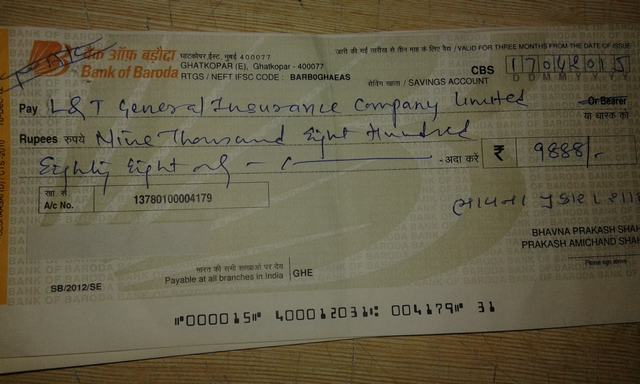 बैंक ऑफ़ बड़ौदा
Bank of Baroda
घाटकोपर ईस्ट, मुंबई 400077
GHATKOPAR (E), Ghatkopar - 400077
RTGS / NEFT IFSC CODE : BARB0GHAEAS
जारी की गई तारीख से तीन माह के लिए वैध / VALID FOR THREE MONTHS FROM THE DATE OF ISSUE
CBS 17042015
D D M M Y Y Y Y
सेविंग खाता / SAVINGS ACCOUNT
Pay L&T General Insurance Company Limited Or Bearer
या धारक को
Rupees रुपये Nine Thousand Eight Hundred
Eighty Eight only - अदा करें ₹ 9888/-
खा. सं.
A/c No. 13780100004179
BHAVNA PRAKASH SHAH
PRAKASH AMICHAND SHAH
Please sign above
भारत की सभी शाखाओं पर देय
Payable at all branches in India GHE
SB/2012/SE
⑈000015⑈ 400012031⑆ 004179⑈ 31